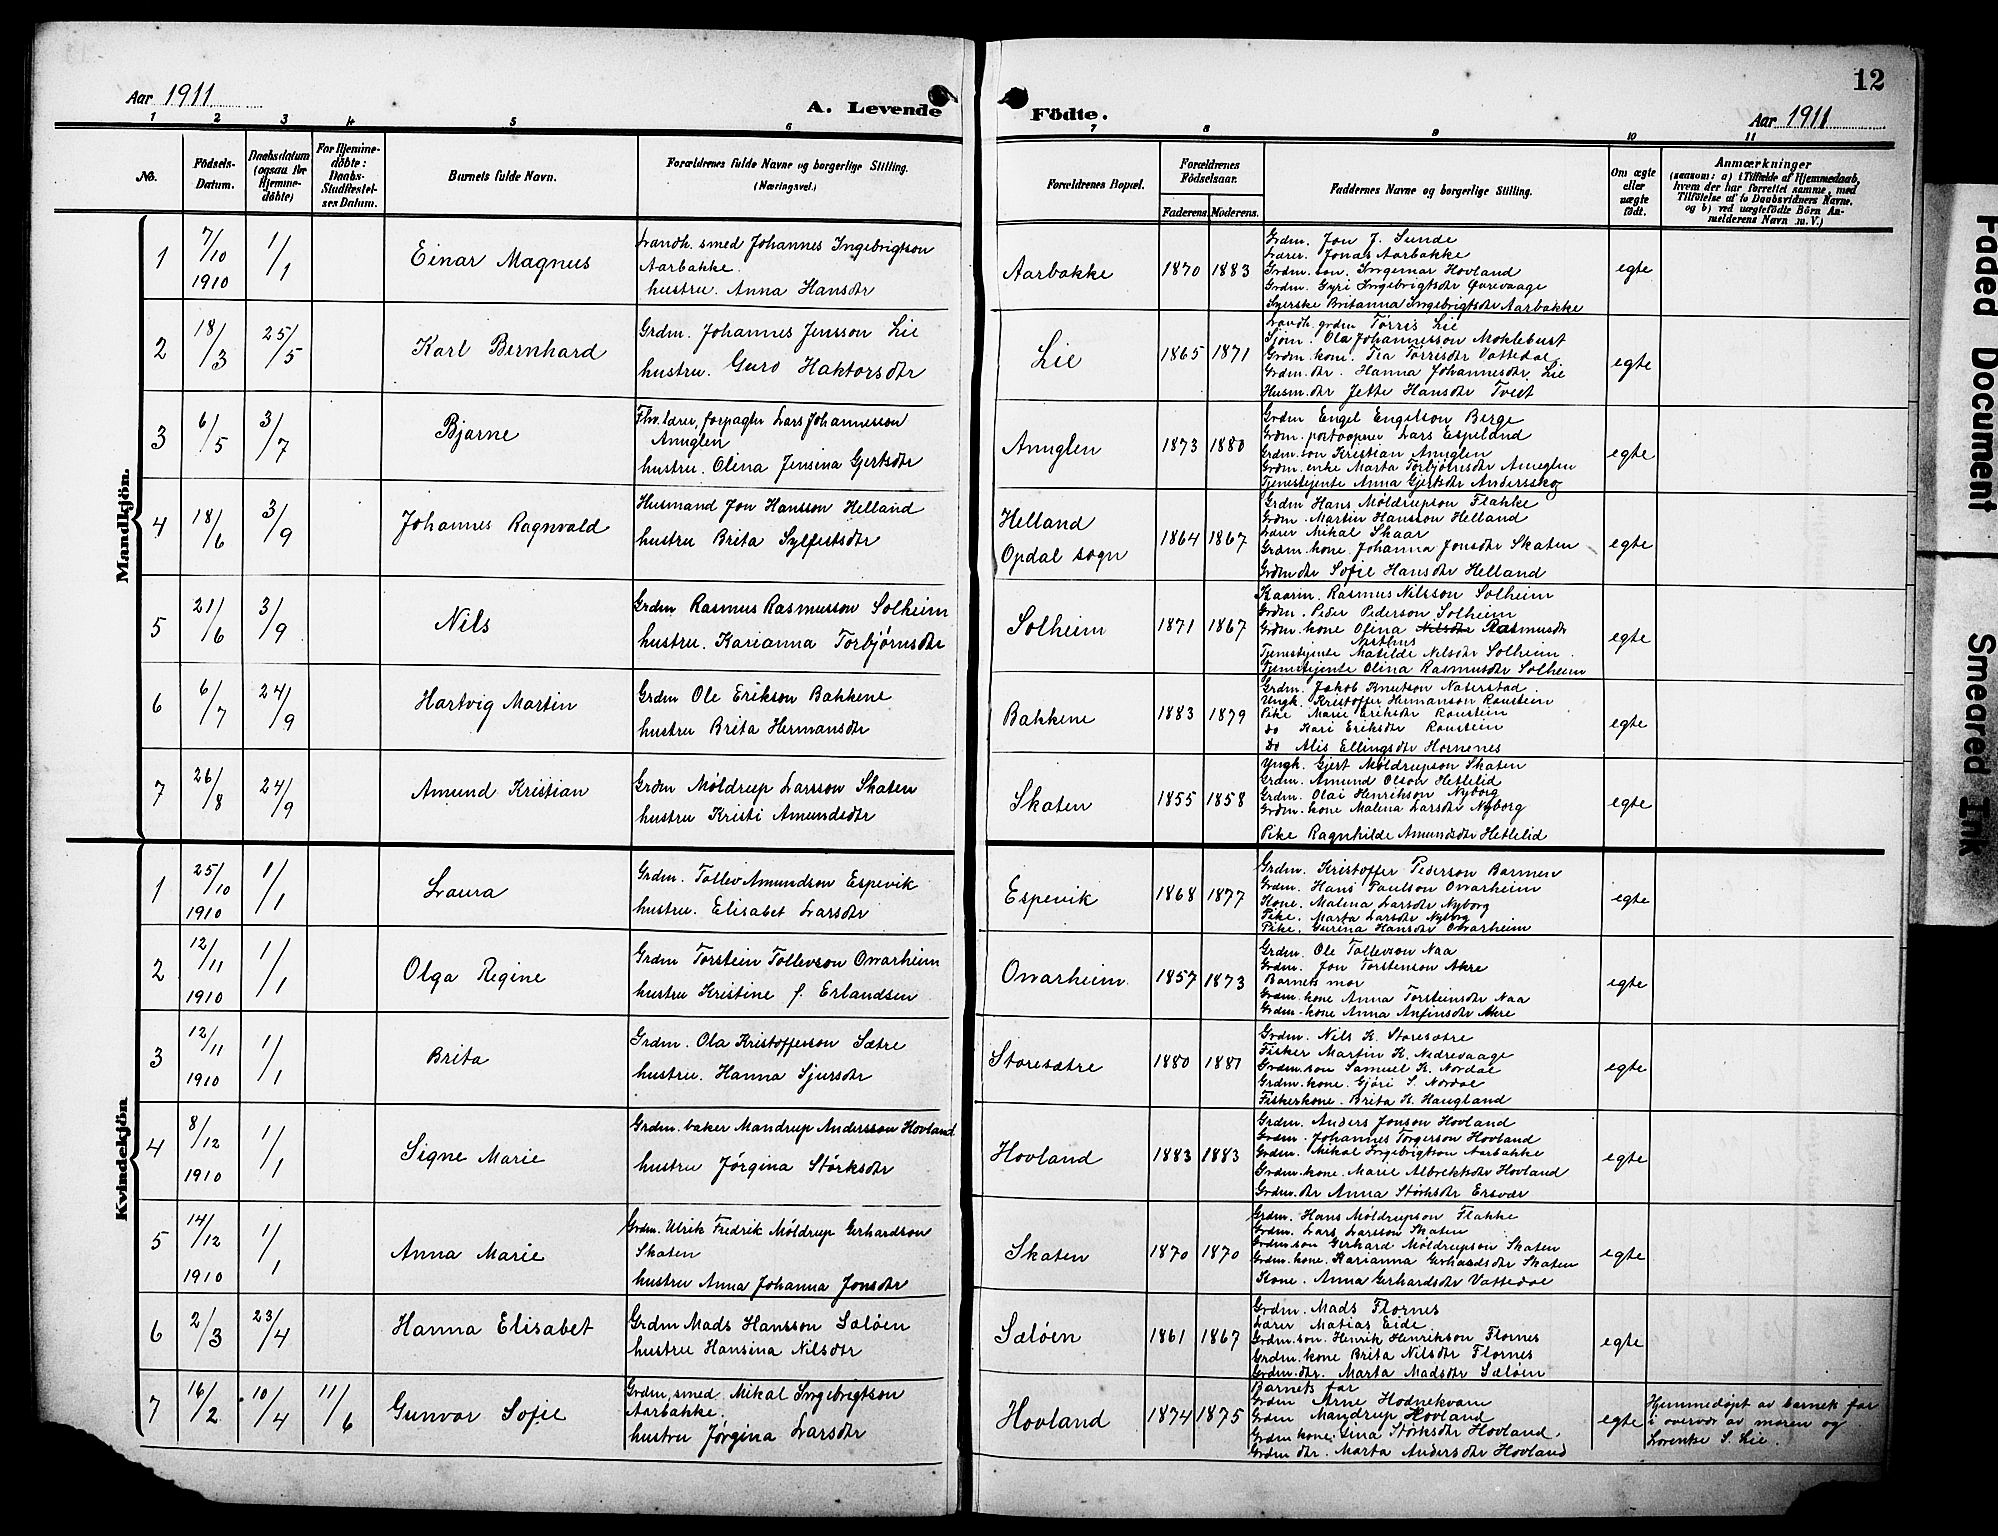 Aar 1911
A. Levende
Födte.
12
Aar 1911
1 2 3 4 5 6 7 8 9 10 11
No.
Födsels-
Datum.
Daabsdatum
(ogsaa for
Hjemme-
döbte)
For Hjemme-
döbte:
Daabs-
Stadfæstel-
ses Datum.
Barnets fulde Navn.
Forældrenes fulde Navne og borgerlige Stilling.
(Næringsvei.)
Forældrenes Bopæl.
Forældrenes
Födselsaar.
Faderens. Moderens.
Faddernes Navne og borgerlige Stilling.
Om ægte
eller
uægte
födt.
Anmærkninger
(saasom: a) i Tilfælde af Hjemmedaab,
hvem der har forrettet samme, med
Tilföielse af to Daabsvidners Navne.
og b) ved uægtefödte Börn An-
melderens Navn m. V.)
Mandkjön.
1
7/10
1910
1/1
Einar Magnus
Landh. smed Johannes Ingebrigtson
Aarbakke.
hustru. Anna Hansdtr
Aarbakke
1870 1883
Grdm. Jon J. Sunde
Lærer. Jonas Aarbakke
Grdm. son. Ingemar Hovland
Grdm. Gyri Ingebrigtsdtr Øvrevaage
Syerske Britanna Ingebrigtsdtr Aarbakke
egte
2
18/3
25/5
Karl Bernhard
Grdm. Johannes Jensson Lie
hustru. Guro Haktorsdtr
Lie
1865 1871
Landh. grdm Tørris Lie
Sjøm. Ola Johannesson Moklebust
Grdm. kone. Tia Tørrisdtr Vattedal
Grdm. dtr. Hanna Johannesdtr Lie
Husm. dtr Jette Hansdtr Tveit
egte
3
6/5
3/7
Bjarne
Fhv. lærer, forpagter Lars Johannesson
Anuglen
hustru. Olina Jensina Gjertsdtr
Anuglen
1873 1880
Grdm Engel Engelson Berge
Grdm. postaapner Lars Espeland
Grdm. son Kristian Anuglen
Grdm. enke Marta Torbjørnsdtr Anuglen
Tjenestjente Anna Gjertsdtr Andersskog
egte
4
18/6
3/9
Johannes Ragnvald
Husmand Jon Hansson Helland
hustru Brita Sylfestsdtr
Helland
Opdal sogn
1864 1867
Grdm Hans Møldrupson Flakke
Grdm. Martin Hansson Helland
Lærer Mikal Skaar
Grdm. kone. Johanna Jonsdtr Skaten
Grdm dtr Sofie Hansdtr Helland
egte
5
21/6
3/9
Nils
Grdm Rasmus Rasmusson Solheim
hustru. Karianna Torbjørnsdtr
Solheim
1871 1867
Kaarin. Rasmus Nilsson Solheim
Grdm. Peder Pederson Solheim
Grdm. kone Olina Nilsdtr Rasmusdtr
Tjenestjente Matilde Nilsdtr Solheim.
Tjenestjente Olina Rasmusdtr Solheim
egte
6
6/7
24/9
Hartvig Martin
Grdm Ole Erikson Bakkene
hustru Brita Hermansdtr
Bakkene
1883 1879
Grdm. Jakob Knutson Naterstad.
Ungk. Kristoffer Hermanson Raustein
Pike Marie Eriksdtr Raustein
Do Kari Eriksdtr Raustein
Do Alis Ellingsdtr Hornenes
egte
7
26/8
24/9
Amund Kristian
Grdm Møldrup Larsson Skaten
hustru Kristi Amundsdtr
Skaten
1855 1858
Yngk. Gjert Møldrupson Skaten
Grdm. Amund Olson Hetlelid
Grdm. Olai Henrikson Nyborg
Grdm. kone Malena Larsdtr Nyborg
Pike Ragnhilde Amundsdtr Hetlelid
egte
Kvindekjön
1
25/10
1910
1/1
Laura
Grdm. Tollev Amundson Espevik
hustru. Elisabet Larsdtr
Espevik
1868 1877
Grdm. Kristoffer Pederson Barmen
Grdm. Hans Paulson Onarheim
Kone. Malena Larsdtr Nyborg
Pike. Marta Larsdtr Nyborg
Pike. Gurina Hansdtr Onarheim
egte
2
12/11
1910
1/1
Olga Regine
Grdm Torstein Tollevson Onarheim
hustru Kristine f. Erlandsen
Onarheim.
1857 1873
Grdm. Ole Tollevson Naa
Grdm. Jon Torstenson Akre
Barnets mor
Grdm. kone Anna Torsteinsdtr Naa
Grdm. kone Anna Anfinsdtr Akre
egte
3
12/11
1910
1/1
Brita
Grdm. Ola Kristofferson Sætre
hustru. Hanna Sjursdtr
Storesætre
1880 1881
Grdm. Nils K. Storesætre
Fisker Martin K. Nedrevaage
Grdm. son Samuel K. Nordal
Grdm. kone. Gjøri S. Nordal
Fiskerkone. Brita H. Haugland
egte
4
8/12
1910
1/1
Signe Marie
Grdm. baker Mandrup Andersson Hovland
hustru Jørgina Størksdtr
Hovland
1883 1883
Grdm. Anders Jonson Hovland
Grdm. Johannes Torgerson Hovland
Grdm. Mikal Ingebrigtson Aarbakke
Grdm. kone. Marie Albrektsdtr Hovland
Grdm. dtr Anna Størksdtr Ersvær
egte
5
14/12
1910
1/1
Anna Marie
Grdm. Ulrik Fredrik Møldrup Gerhardson
Skaten
hustru Anna Johanna Jonsdtr
Skaten
1870 1870
Grdm. Hans Møldrupson Flakke
Grdm. Lars Larsson Skaten
Grdm son Gerhard Møldrupson Skaten
Grdm. kone. Karianna Gerhardsdtr Skaten
Kone. Anna Gerhardsdtr Vattedal
egte
6
2/3
23/4
Hanna Elisabet
Grdm Mads Hansson Sæløen
hustru Hansina Nilsdtr
Sæløen
1861 1867
Grdm. Mads Flornes
Lærer Matias Eide
Grdm. son. Henrik Henrikson Flornes
Grdm. kone Brita Nilsdtr Flornes
Grdm. dtr. Marta Madsdtr Sæløen
egte
7
16/2
10/4
11/6
Gunvor Sofie
Grdm. smed. Mikal Ingebrigtson
Aarbakke.
hustru Jørgina Larsdtr
Hovland
1874 1875
Barnets far
Grdm Arne Hodnekvam
Grdm Mandrup Hovland
Grdm kone. Gina Størksdtr Hovland.
Grdm dtr. Marta Andersdtr Hovland
egte
Hjemmedøpt av barnets far
i overvær av moren og
Lorentse S. Lie.
Faded Document
Smeared Ink